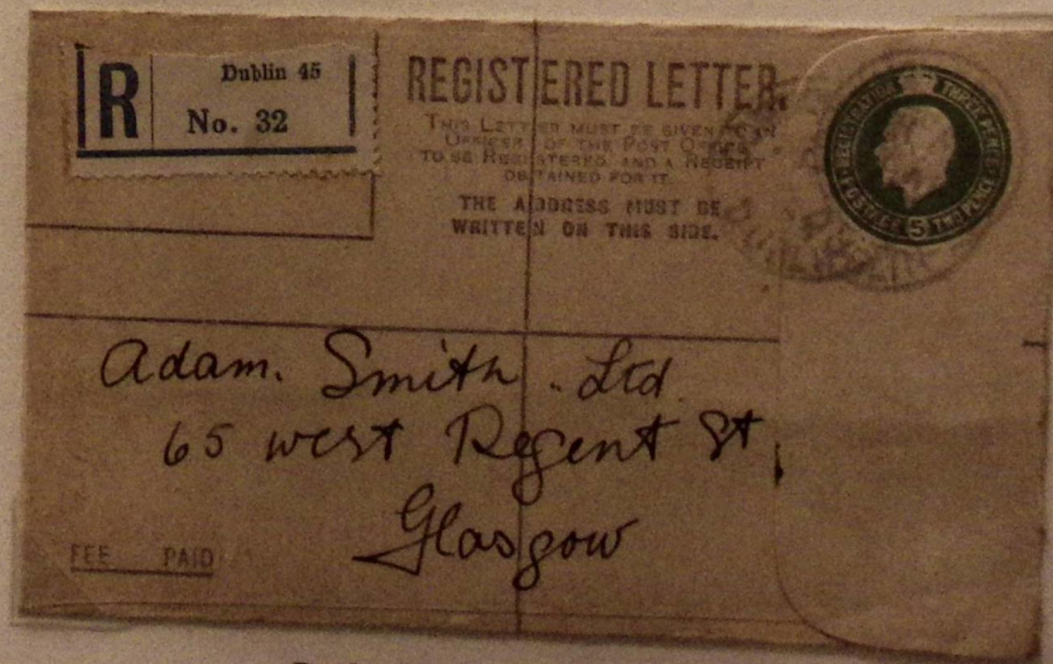 R
Dublin 45
No. 32
REGISTERED LETTER.
THIS LETTER MUST BE GIVEN TO AN
OFFICER OF THE POST OFFICE
TO BE REGISTERED AND A RECEIPT
OBTAINED FOR IT.
THE ADDRESS MUST BE
WRITTEN ON THIS SIDE.
REGISTRATION THREE PENCE
POSTAGE 5 TWO PENCE
Adam. Smith. Ltd.
65 west Regent St,
Glasgow
FEE PAID